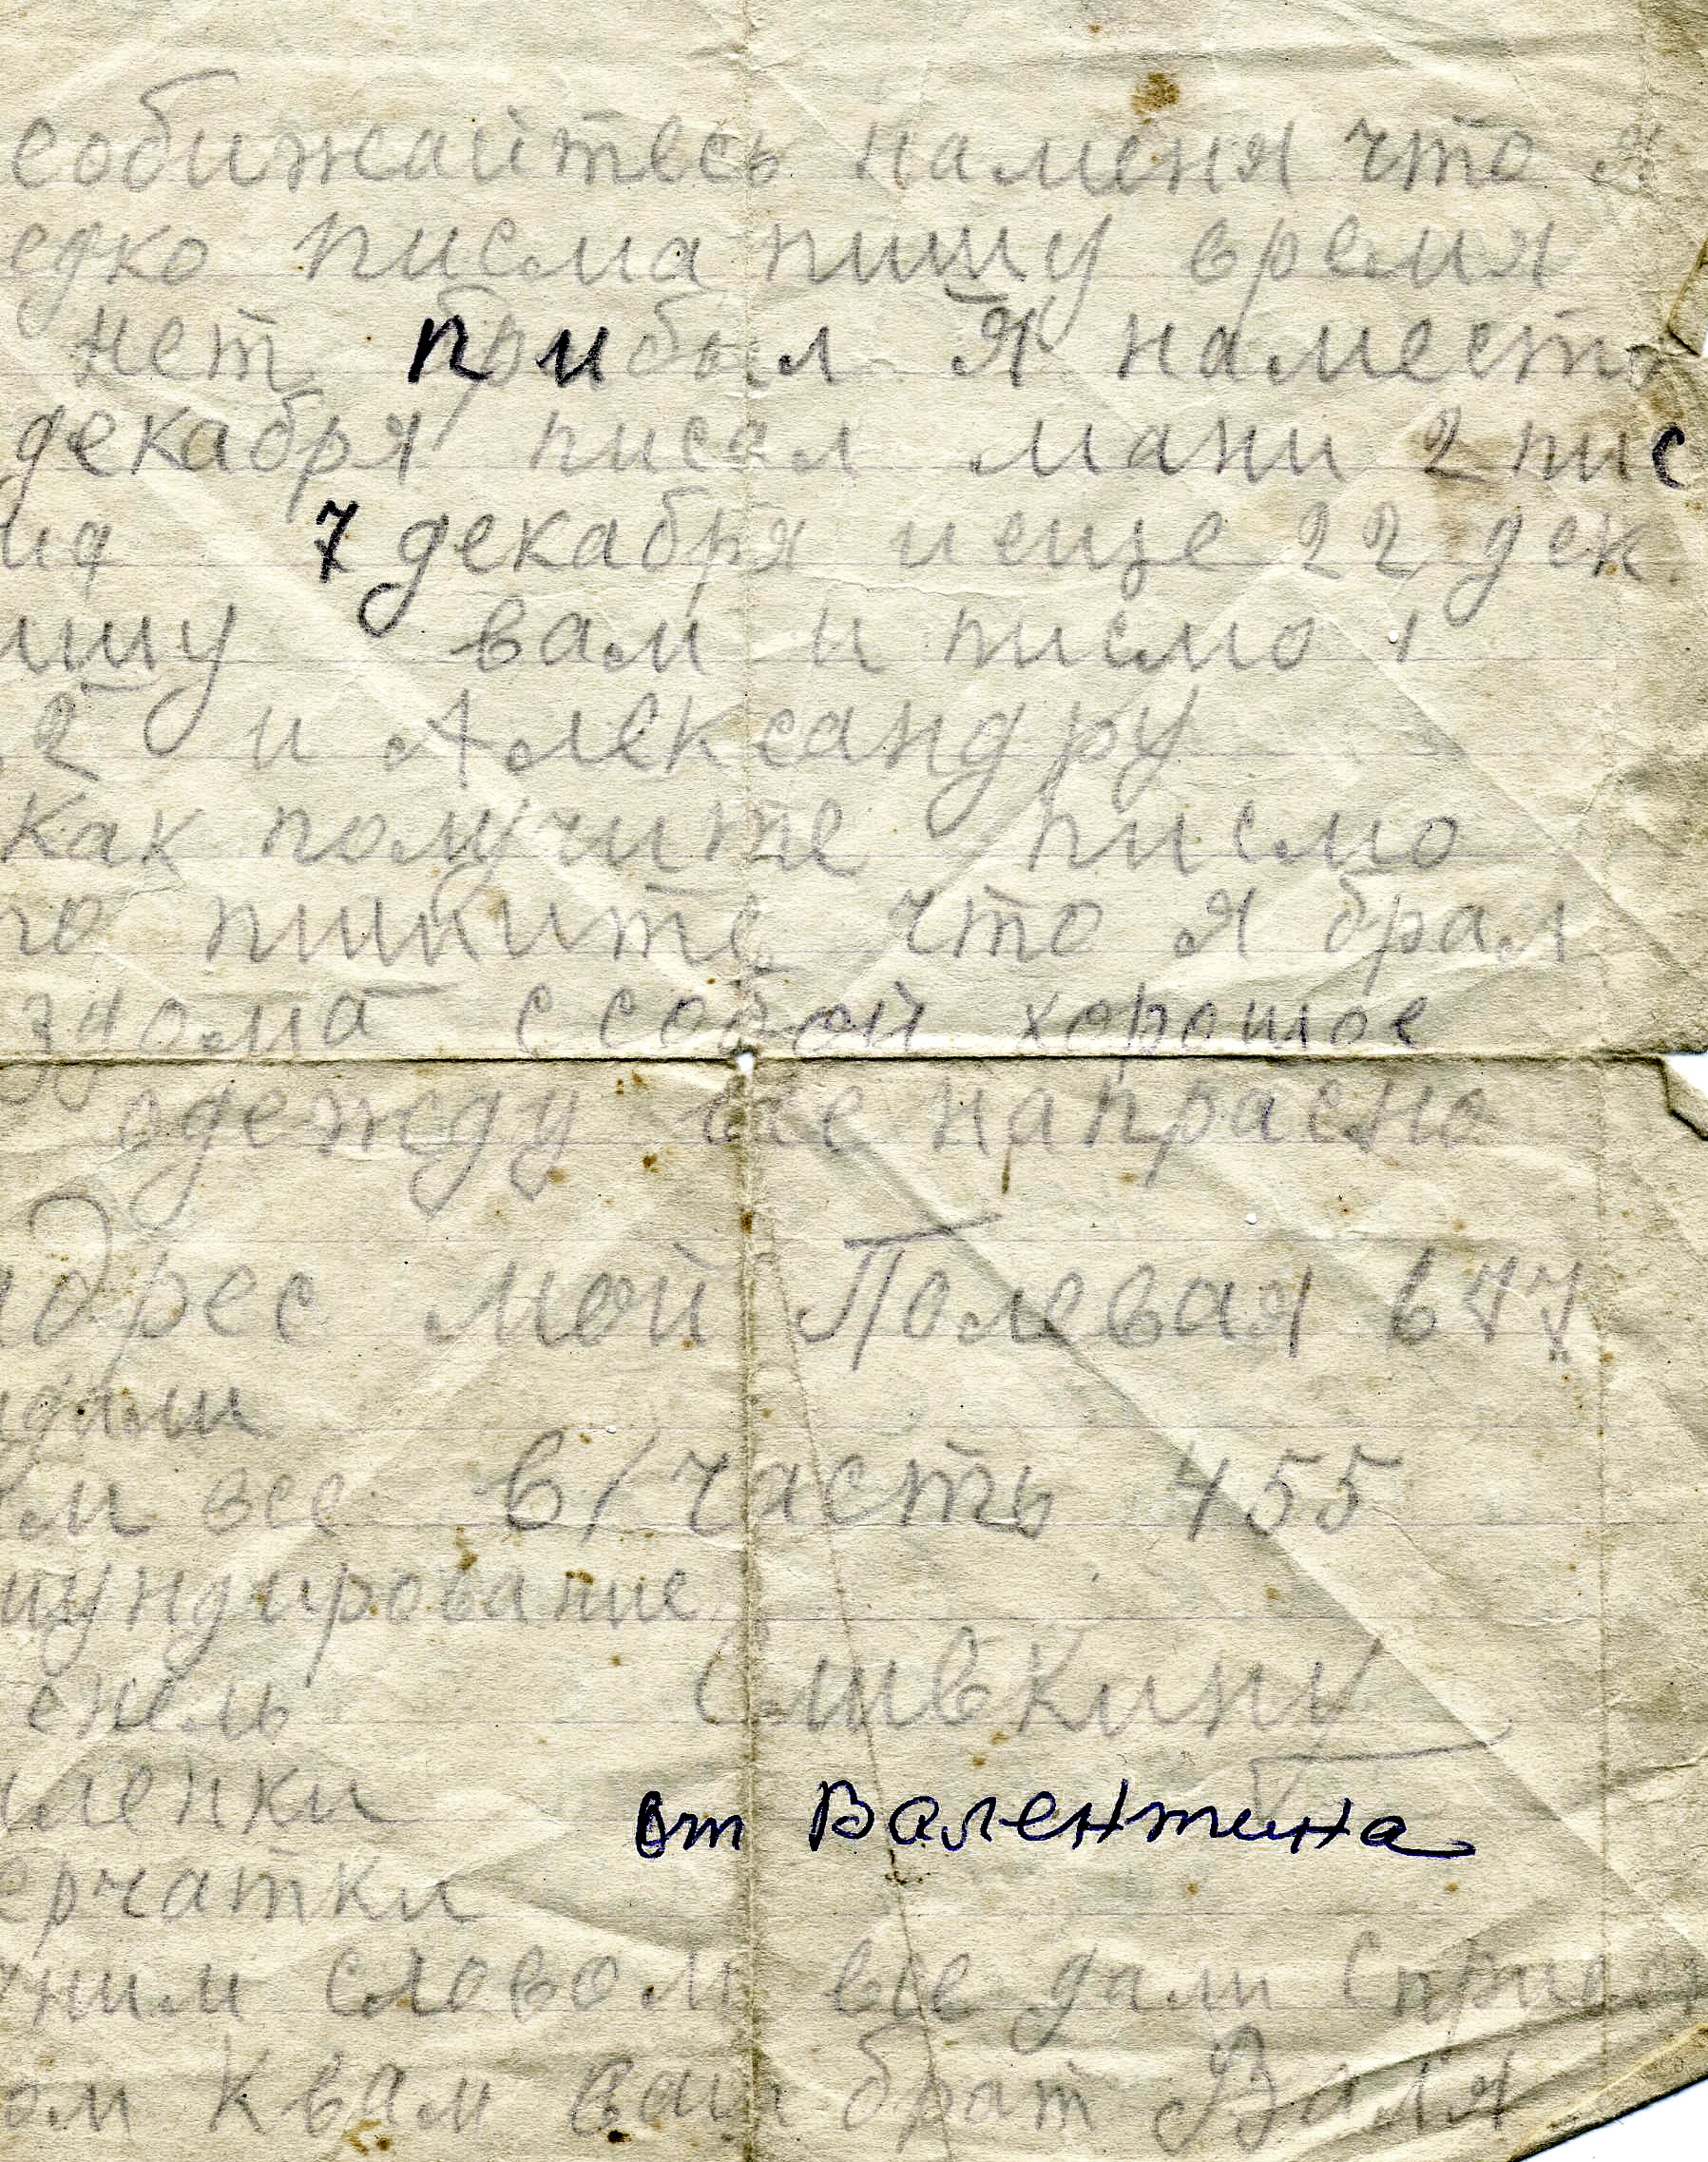 еобижайтесь наменя что я
едко писма пишу время
нет прибыл я наместо
декабря писал мани 2 пис
ма 7 декабря и еще 22 дек.
пишу вам и писмо 1
2 и Александру
как получите писмо
то пишите что я брал
здома ссобой хорошое
одежду все напрасно
адрес мой Полевая 647
дали
ам все в/часть 455
мундирование
Сливкину
енель
ленки
от Валентина
ерчатки
дним словом все дали Сприве
ом Квам ваш брат Валя